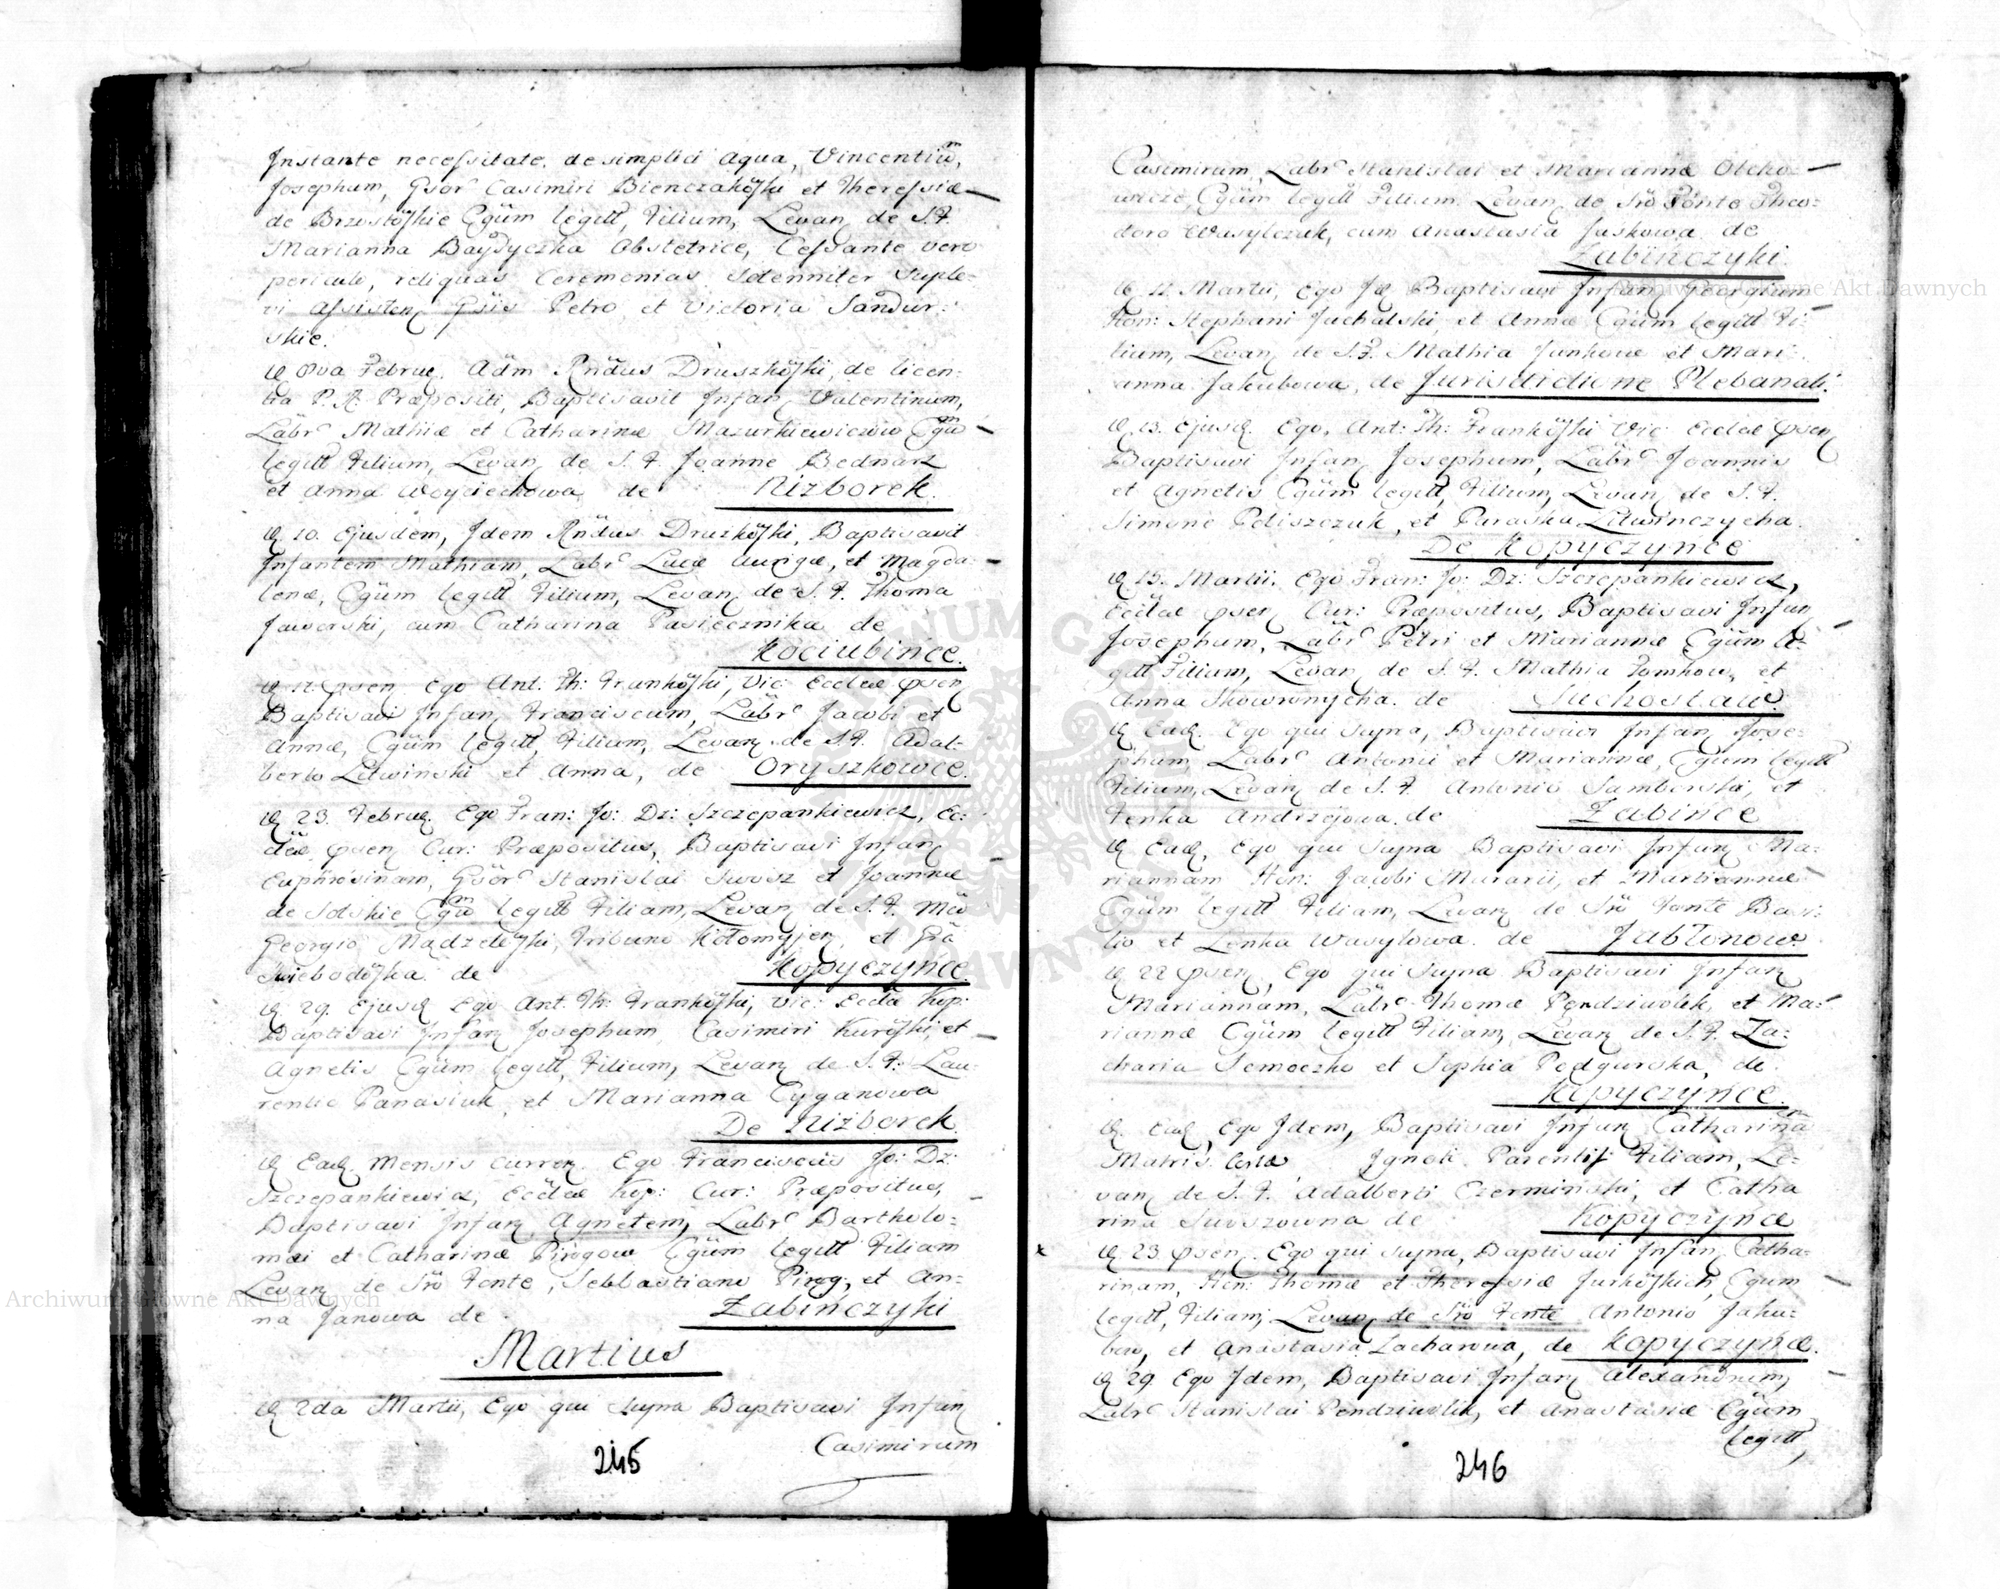 Instante necessitate, de simplici aqua, Vincentiũ,
Josephum, Gsor. Casimiri Bienczakoẏski et Theressiæ
de Brzostoẏskie Cgũm legitt, Filium, Levanʒ de S. F.
Marianna Baydyczka Obstetrice, Cessante vero
periculo, reliquas Ceremonias Solenniter Suple-
vi Assistenʒ Gsis Petro et Victoria Sandur-
skie.
D. 8va Februʒ. Adm Rndus Druszkoẏski, de licen-
tia P. R. Præpositi, Baptisavit Infanʒ Valentinum,
Labr. Mathiæ et Catharinæ Mazurkiewiczow Cgũ
legitt Filium, Levanʒ de S. F. Joanne Bednarz
et Anna Woyciechowa de Nizborek.
D. 10. Ejusdem, Idem Rndus Druzkoẏski, Baptisavit
Infantem Mathiam, Labr. Lucæ Aurigæ, et Magda-
lenæ, Cgũm legitt Filium, Levanʒ de S. F. Thoma
Jaworski, cum Catharina Pasiecznika de
Kociubińce.
D. 12. psenʒ. Ego Ant. Th: Frankoẏski, Vic: Ecclæ psenʒ
Baptisavi Infanʒ Franciscum, Labr. Jacobi et
Annæ, Cgũm legitt, Filium, Levanʒ de S. F. Adal-
berto Litwinski et Anna, de Oryszkowce.
D. 23. Februʒ. Ego Fran: Jo: Dz: Szczepankiewicz, Ec-
clæ psenʒ Cur: Præpositus, Baptisavi Infanʒ
Euphrosinam, Gsor. Stanislai Swosz et Joannæ
de Solskie Cgũ legitt Filiam, Levanʒ de S. F. Mco
Georgio Mądzeleẏski, Tribuno Kołomyjenʒ, et Gsa
Swiebodoẏska de Kopyczyńce.
D. 29. Ejusd. Ego Ant. Th: Frankoẏski, Vic: Ecclæ Kop:
Baptisavi Infanʒ Josephum Casimiri Kuroẏski, et
Agnetis Cgũm legitt, Filium, Levanʒ de S. F. Lau-
rentio Panasiuk et Marianna Cyganowa
De Nizborek
D. Ead. mensis curren. Ego Franciscus Jo: Dz:
Szczepankiewicz, Ecclæ Kop: Cur: Præpositus,
Baptisavi Infanʒ Agnetem, Labr. Bartholo-
mæi et Catharinæ Pirogow Cgũm legitt Filiam
Levanʒ de Sro Fonte, Sebbastiano Pirog, et An-
na Janowa de Zabinczyki
Martius
D. 2da Martii, Ego qui supra Baptisavi Infanʒ
Casimirum
245
Casimirum, Labr. Stanislai et Mariannæ Olcho-
wicze, Cgũm legitt Filium. Levanʒ de Sro Fonte Theo-
doro Wasylczuk, cum Anastasia Jaskowa de
Zabinczyki.
D. 12. Martii, Ego Id. Baptisavi Infanʒ Georgium
Hon: Stephani Juchalski, et Annæ Cgũm legitt Fi-
lium, Levanʒ de S. F. Mathia Junkow et Mari-
anna Jakubowa, de Jurisdictione Plebanali.
D. 13. Ejusd. Ego. Ant: Th: Frankoẏski Vic: Ecclæ psenʒ
Baptisavi Infanʒ Josephum, Labr. Joannis
et Agnetis Cgũm legitt, Filium, Levanʒ de S. F.
Simone Peliszczuk, et Paraska Litwinczycha.
De Kopyczyńce
D. 15. Martii. Ego Fran: Jo: Dz: Szczepankiewicz,
Ecclæ psenʒ Cur: Præpositus, Baptisavi Infanʒ
Josephum, Labr. Petri et Mariannæ Cgũm le-
gitt Filium, Levanʒ de S. F. Mathia Tomkow, et
Anna Skowronycha. de Suchostaw
D. Ead. Ego qui supra, Baptisavi Infanʒ Jose-
phum Labr. Antonii et Mariannæ, Cgũm legitt
Filium, Levanʒ de S. F. Antonio Samborski, et
Fenka Andrzejowa. de Zabińce
D. Ead, Ego qui supra Baptisavi Infanʒ Ma-
riannam Hon: Jacobi Murarii, et Mariannæ
Cgũm legitt Filiam, Levanʒ de Sro Fonte Basi-
lio et Lenka Wasylowa. de Jabłonow
D. 22 psenʒ, Ego qui supra Baptisavi Infanʒ
Mariannam, Labr. Thomæ Pendziwolk, et Ma-
riannæ Cgũm legitt Filiam, Levanʒ de S. F. Za-
charia Semoczko et Sophia Podgurska, de
Kopyczyńce.
D. Ead, Ego Idem, Baptisavi Infanʒ Catharinã
Matris Certæ Ignoti Parentis Filiam, Le-
vanʒ de S. F. Adalberti Czerminski, et Catha
rina Swoszowna de Kopyczyńce
D. 23 psenʒ. Ego qui supra, Baptisavi Infanʒ Catha-
rinam, Hon: Thomæ et Theressiæ Jurkoẏskich, Cgum
legitt, Filiam, Levanʒ de Sro Fonte Antonio Jaku-
bow, et Anastasia Zacharowa, de Kopyczyńce.
D. 29. Ego Idem, Baptisavi Infanʒ Alexandrum,
Labr. Stanislai Pendziwolk, et Anastasiæ Cgũm
legitt,
246
Archiwum Główne Akt Dawnych
Archiwum Główne Akt Dawnych